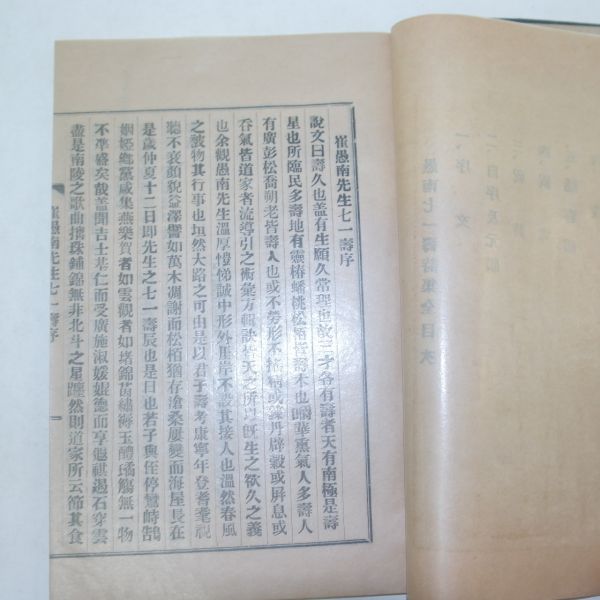 崔愚南先生七一壽序
說文曰壽久也盖有生願久常理也故三才各有壽者天有南極是壽
星也所臨民多壽地有靈椿蟠桃松栢皆壽木也 華薰氣人多壽人
有廣彭松喬朔老皆壽人也或不勞形不 或鍊丹辟穀或屏息或
吞氣皆道家者流導引之術 方 訣 天之所以旣生之欲久之義
也余觀愚南先生溫厚愷悌誠中形外 岸不 其接人也溫然春風
之被物其行事也坦然大路之可由是以君子壽考康寧年登耆耄視
聽不衰顔貌益澤譬如萬木凋謝而松栢猶存滄桑屢變而海屋長在
是歲仲夏十二日卽先生之七一壽辰也是日也若子與侄停鸞峙鵠
姻婭鄕黨咸集燕樂賀者如雲觀者如堵錦茵繡褥玉醴 觴無一物
不準盛矣哉盖聞吉士基仁而受廣施淑媛 德而享 祺遏石穿雲
盡是南陵之歌曲 珠鋪錦無非北斗之星躔然則道家所云節其食
崔愚南先生七一壽序
愚南七一壽詩集全目次
一、序文
一、自序及元韻